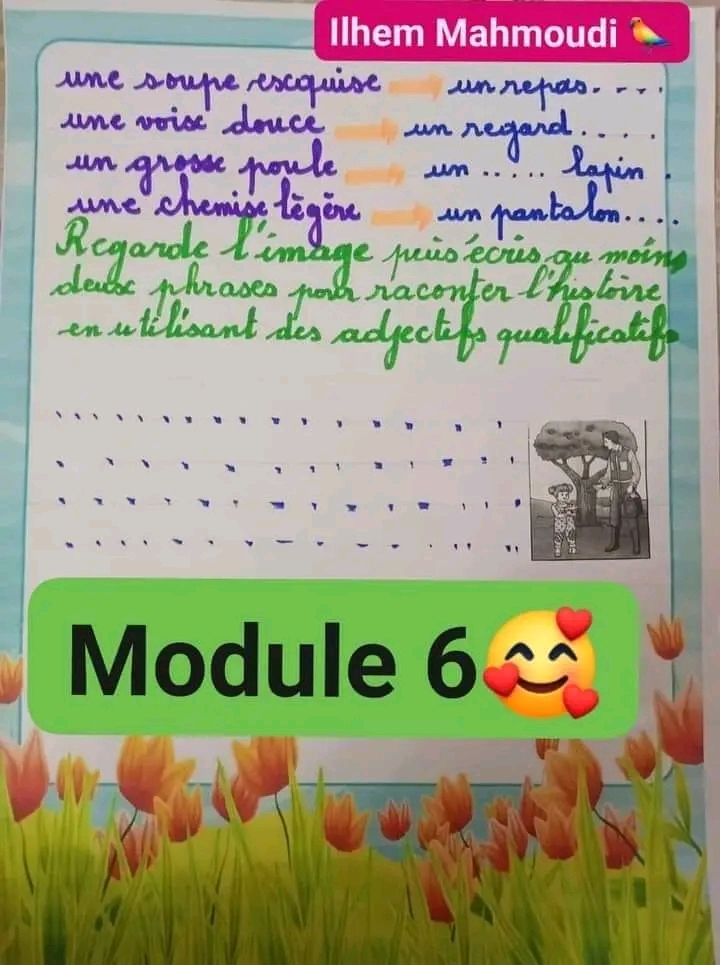 Ilhem Mahmoudi
une soupe exquise un repas. . . .
une voix douce un regard. . . .
un grosse poule un ..... lapin.
une chemise légère un pantalon....
Regarde l'image puis écris au moins
deux phrases pour raconter l'histoire
en utilisant des adjectifs qualificatifs
Module 6